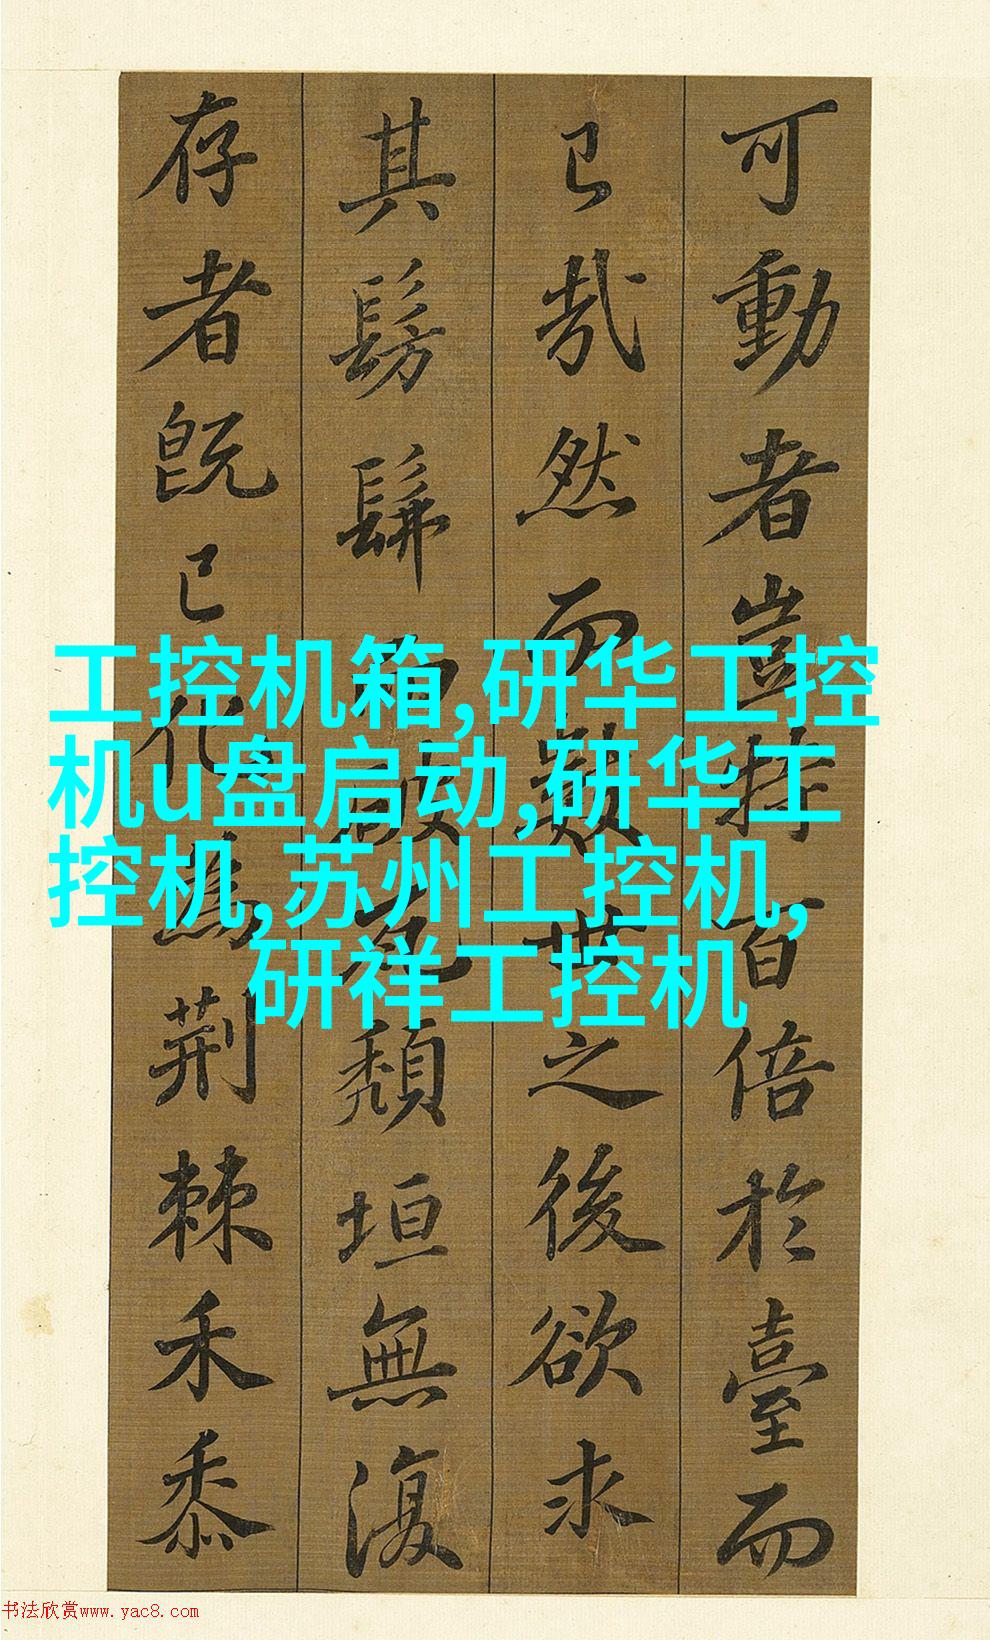 可動者豈特百倍於臺而
已哉然而數世之後欲求
其髣髴而破瓦頹垣無復
存者既已化為荊棘禾黍
工控机箱,研华工控
机u盘启动,研华工
控机,苏州工控机,
研祥工控机
书法欣赏www.yac8.com